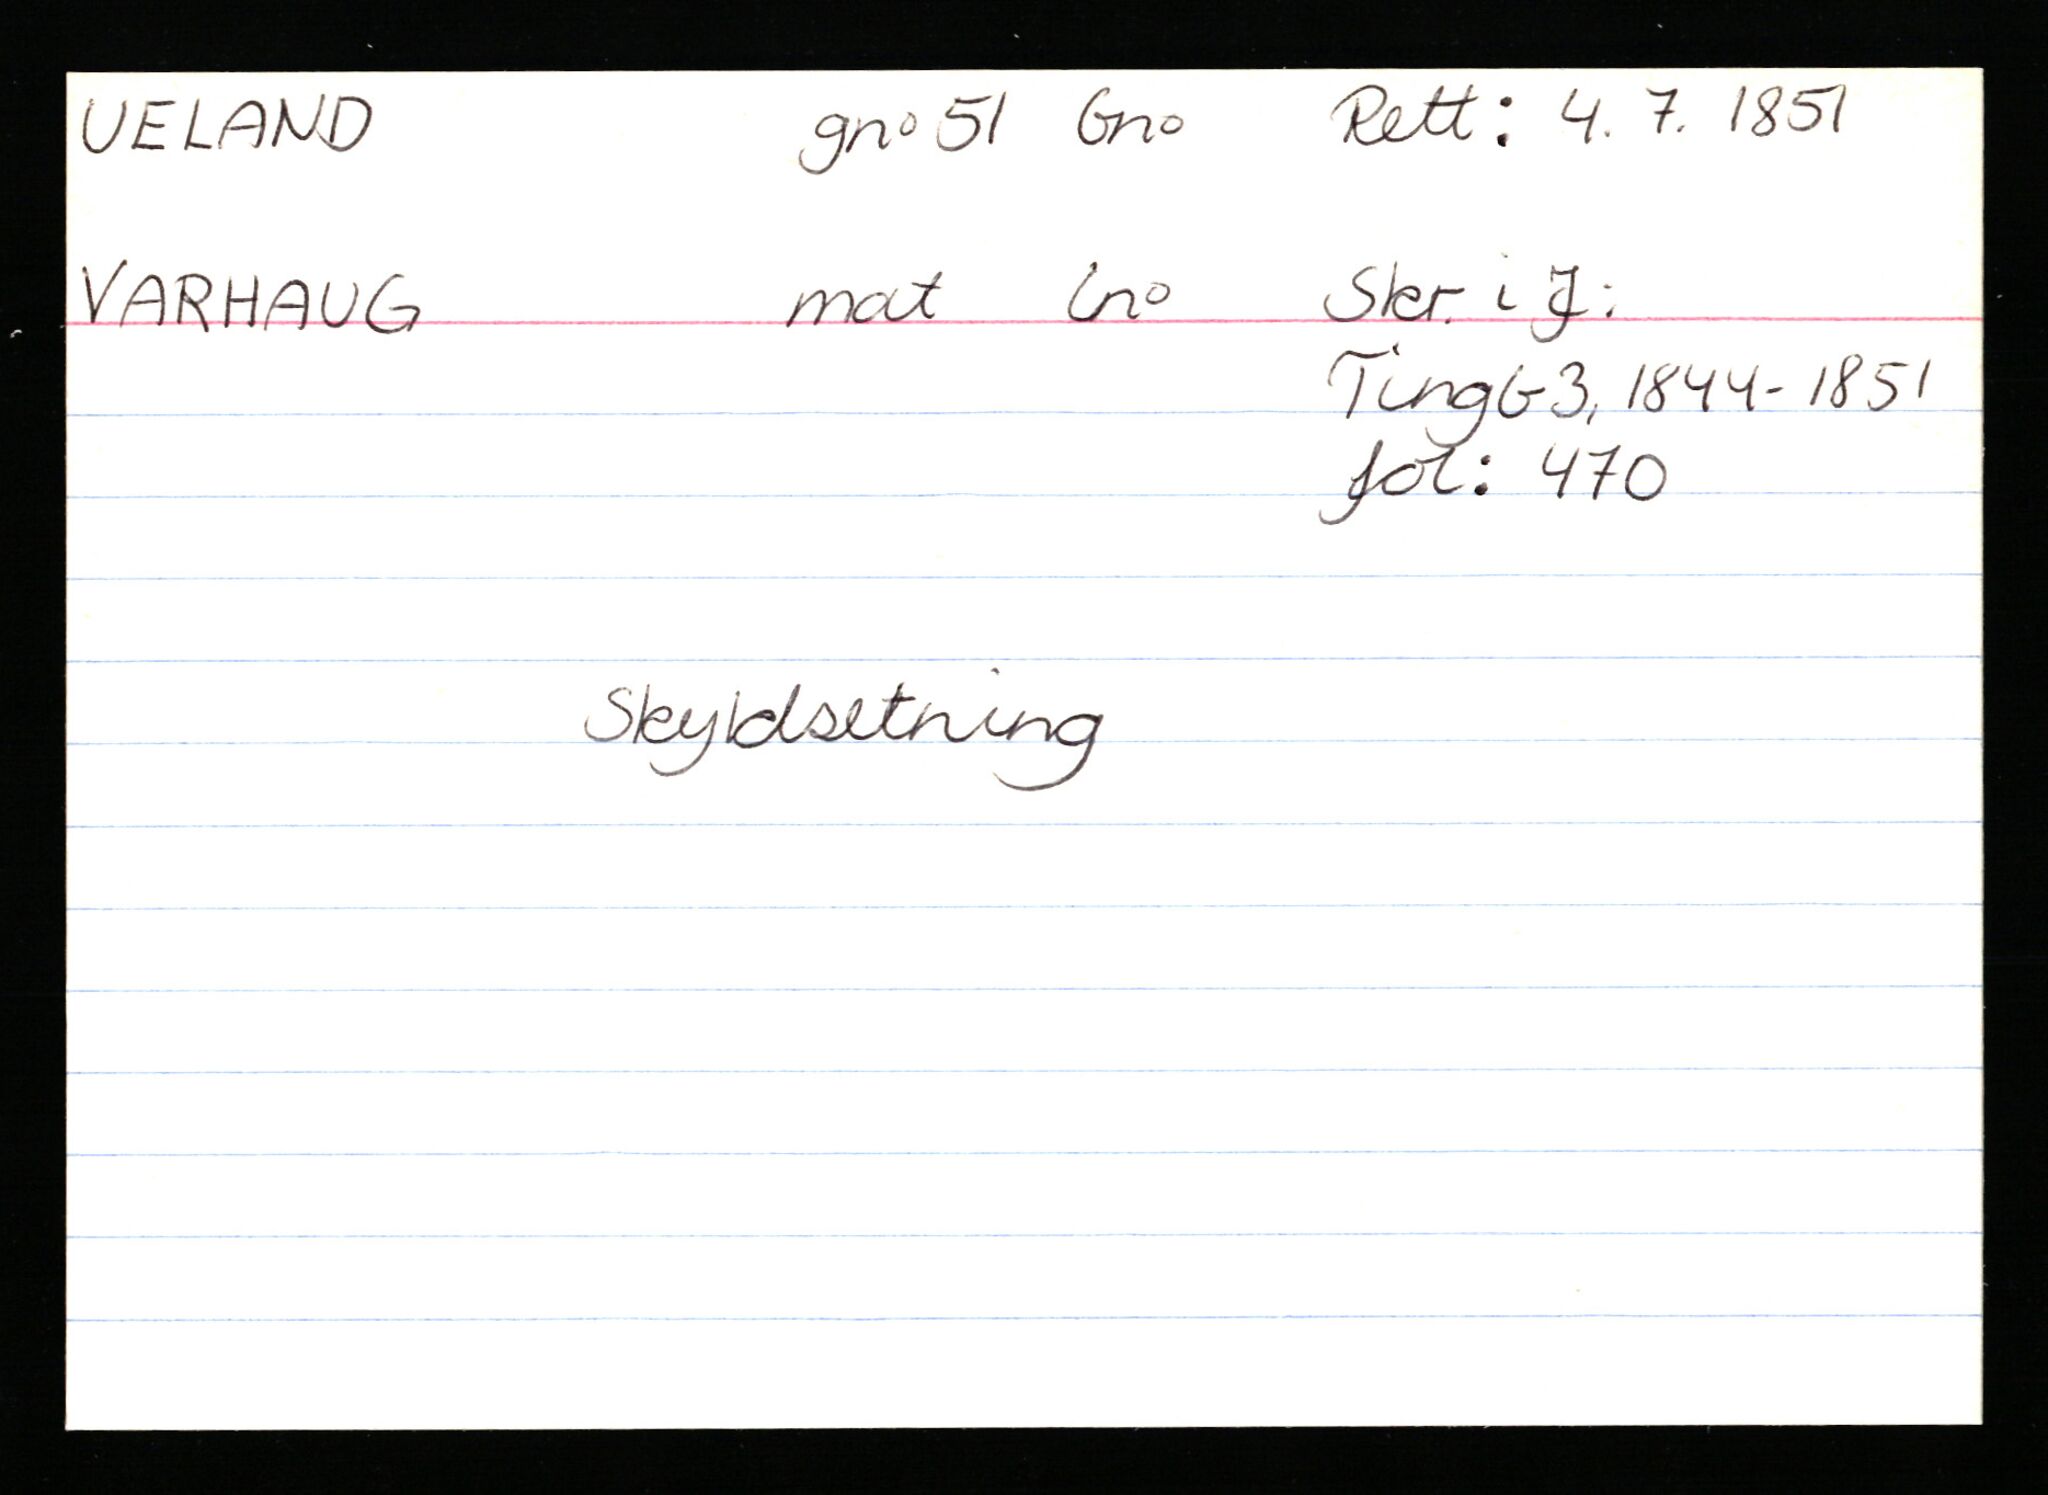 UELAND gno 51 bno Rett: 4. 7. 1851
VARHAUG mat lno Skr. i J:
Tingb 3, 1844-1851
fol: 470
Skyldsetning